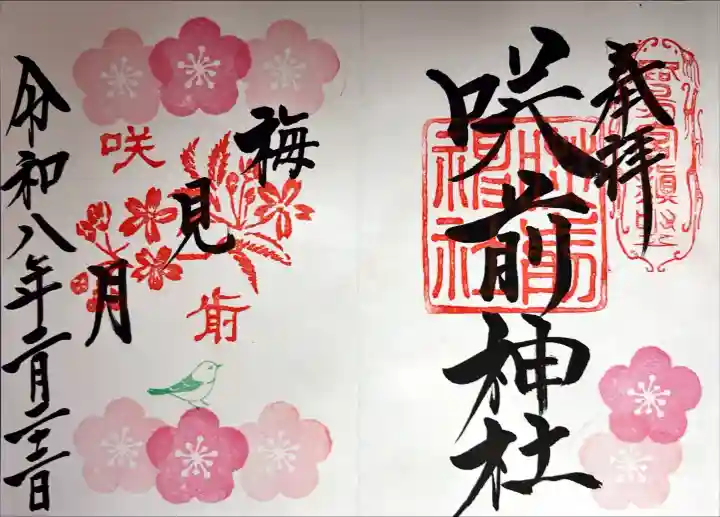 奉拝
咲前神社
咲前
神社
梅見月
咲
前
令和八年二月二十一日